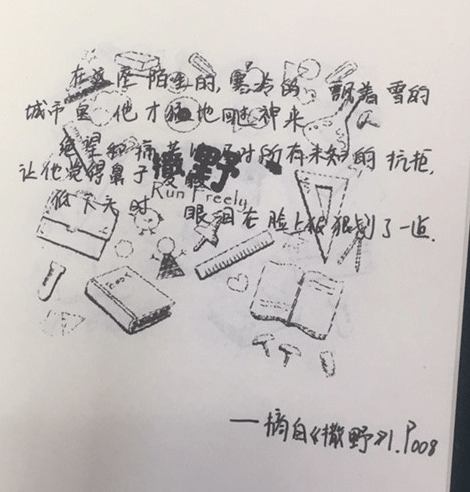 在这座陌生的,寒冷的 飘着雪的
城市里 他才猛地回过神来
绝望和痛苦以及对所有未知的抗拒,
让他觉得鼻子
撒野
Run Freely
低下头时 眼泪在脸上狠狠划了一道.
——摘自《撒野》1.P008